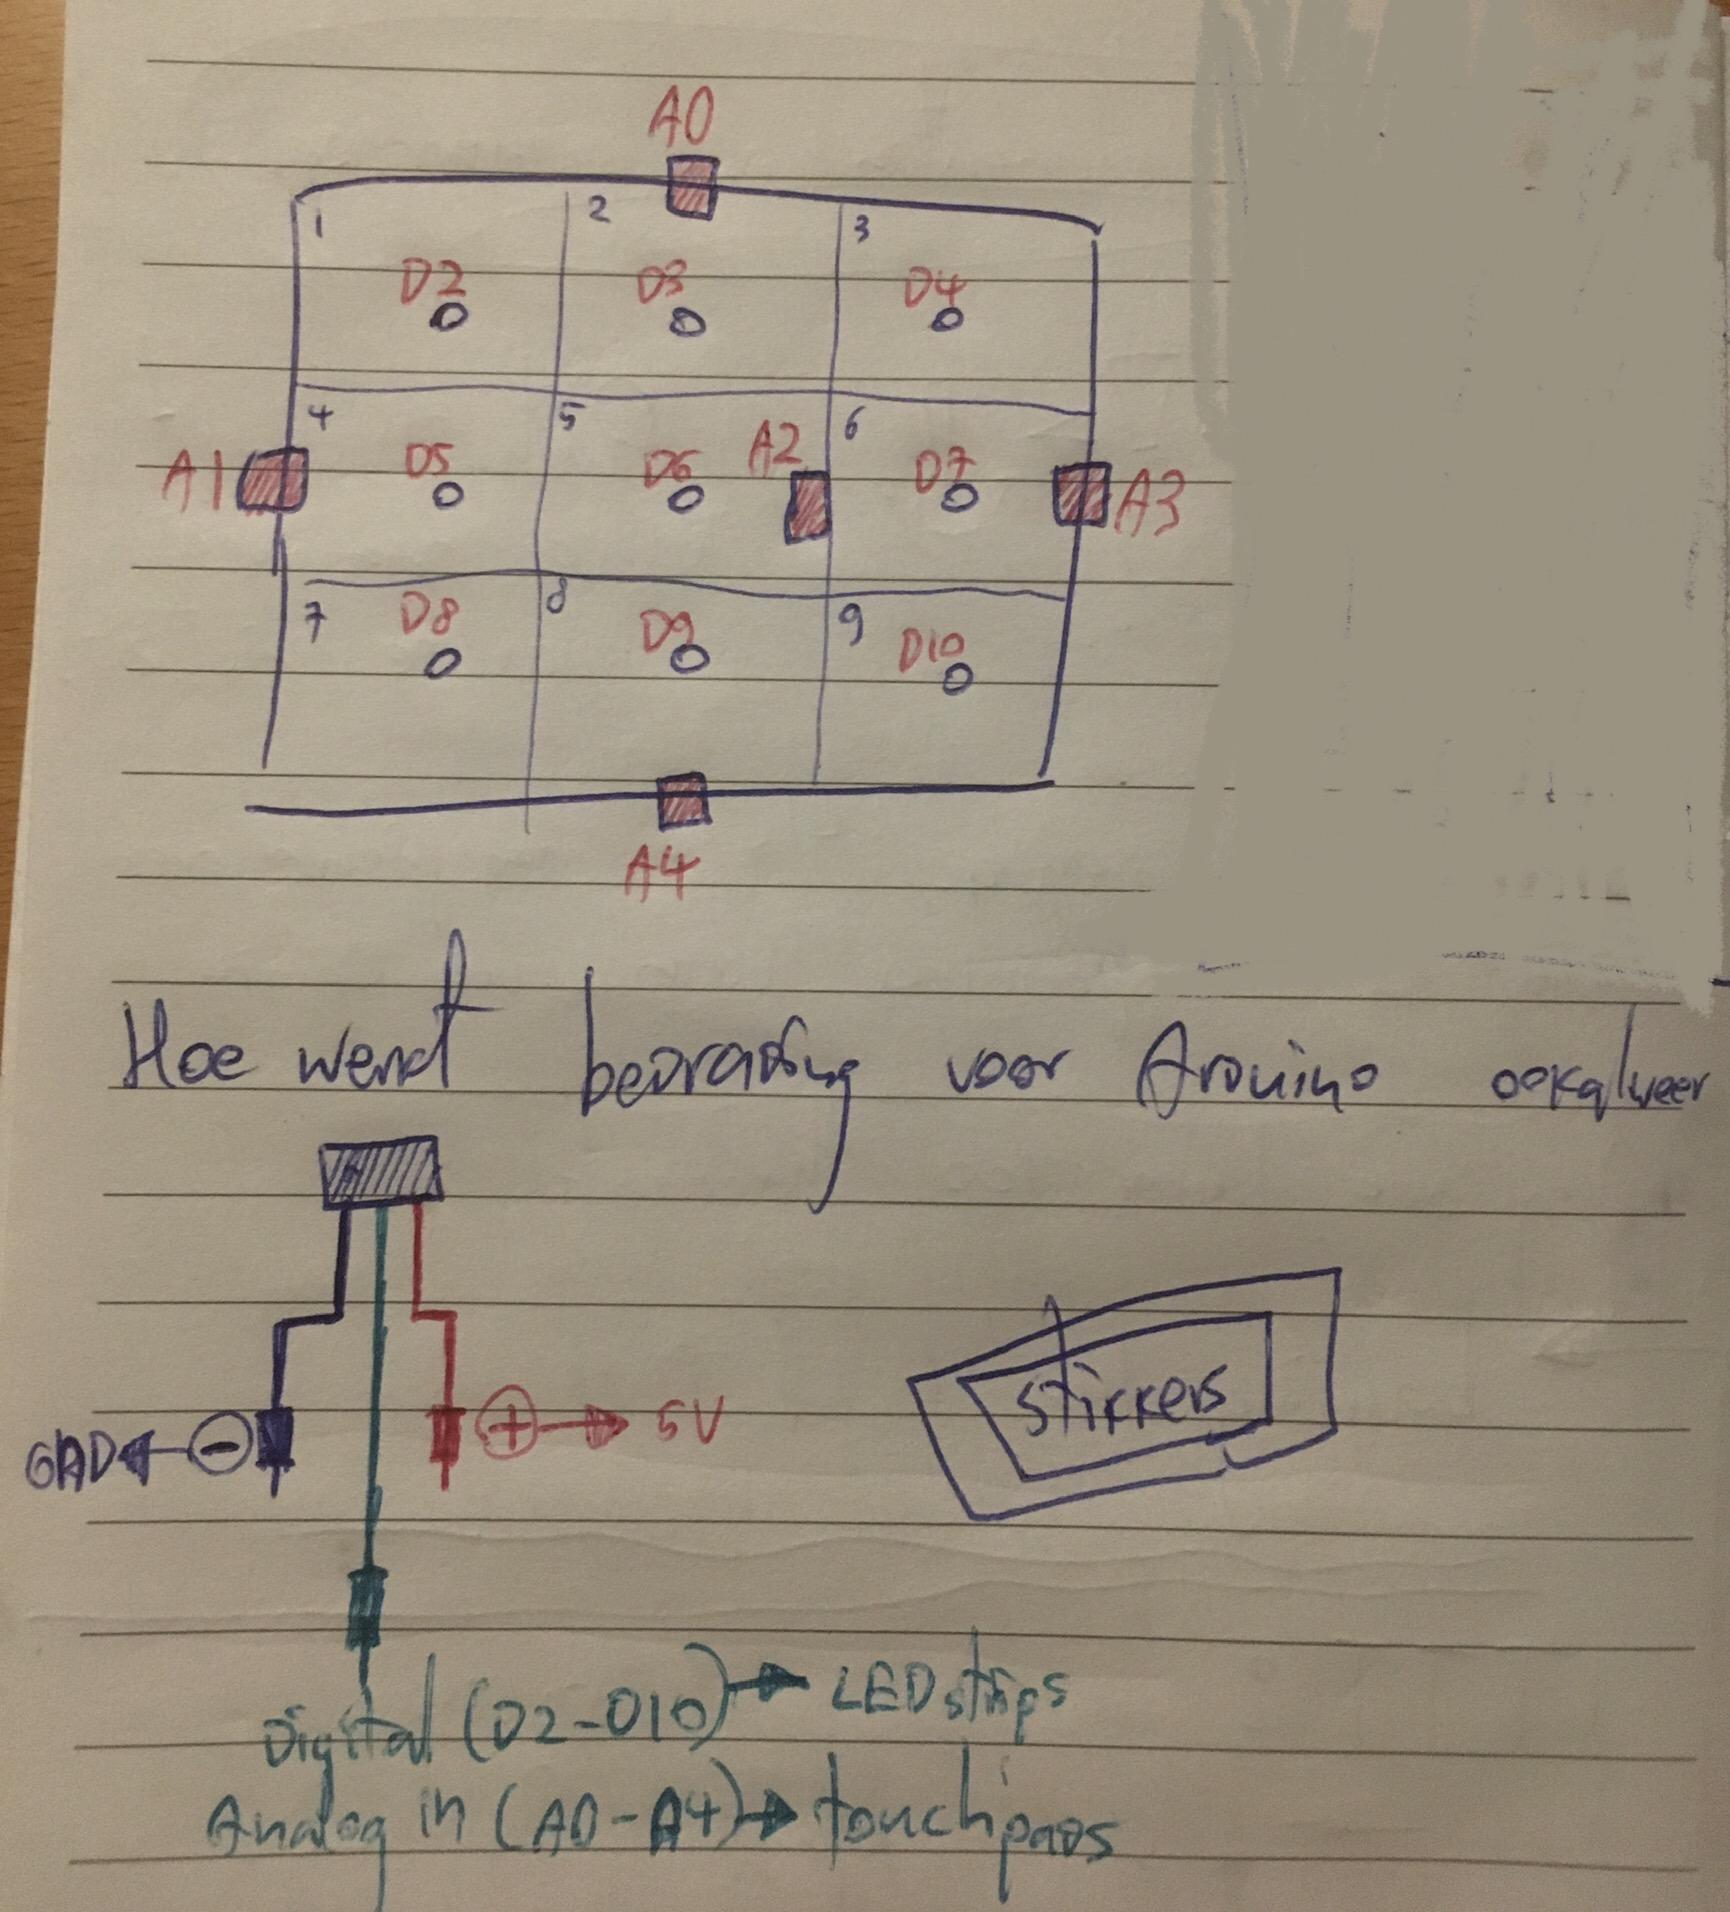 A0
1 2 3
D2 D3 D4
4 5 6
A1 D5 D6 A2 D7 A3
7 8 9
D8 D9 D10
A4
Hoe werkt bedrading voor Arduino ookalweer
GND ← - + → 5V
stickers
Digital (D2-D10) → LED strips
Analog in (A0-A4) → touchpads